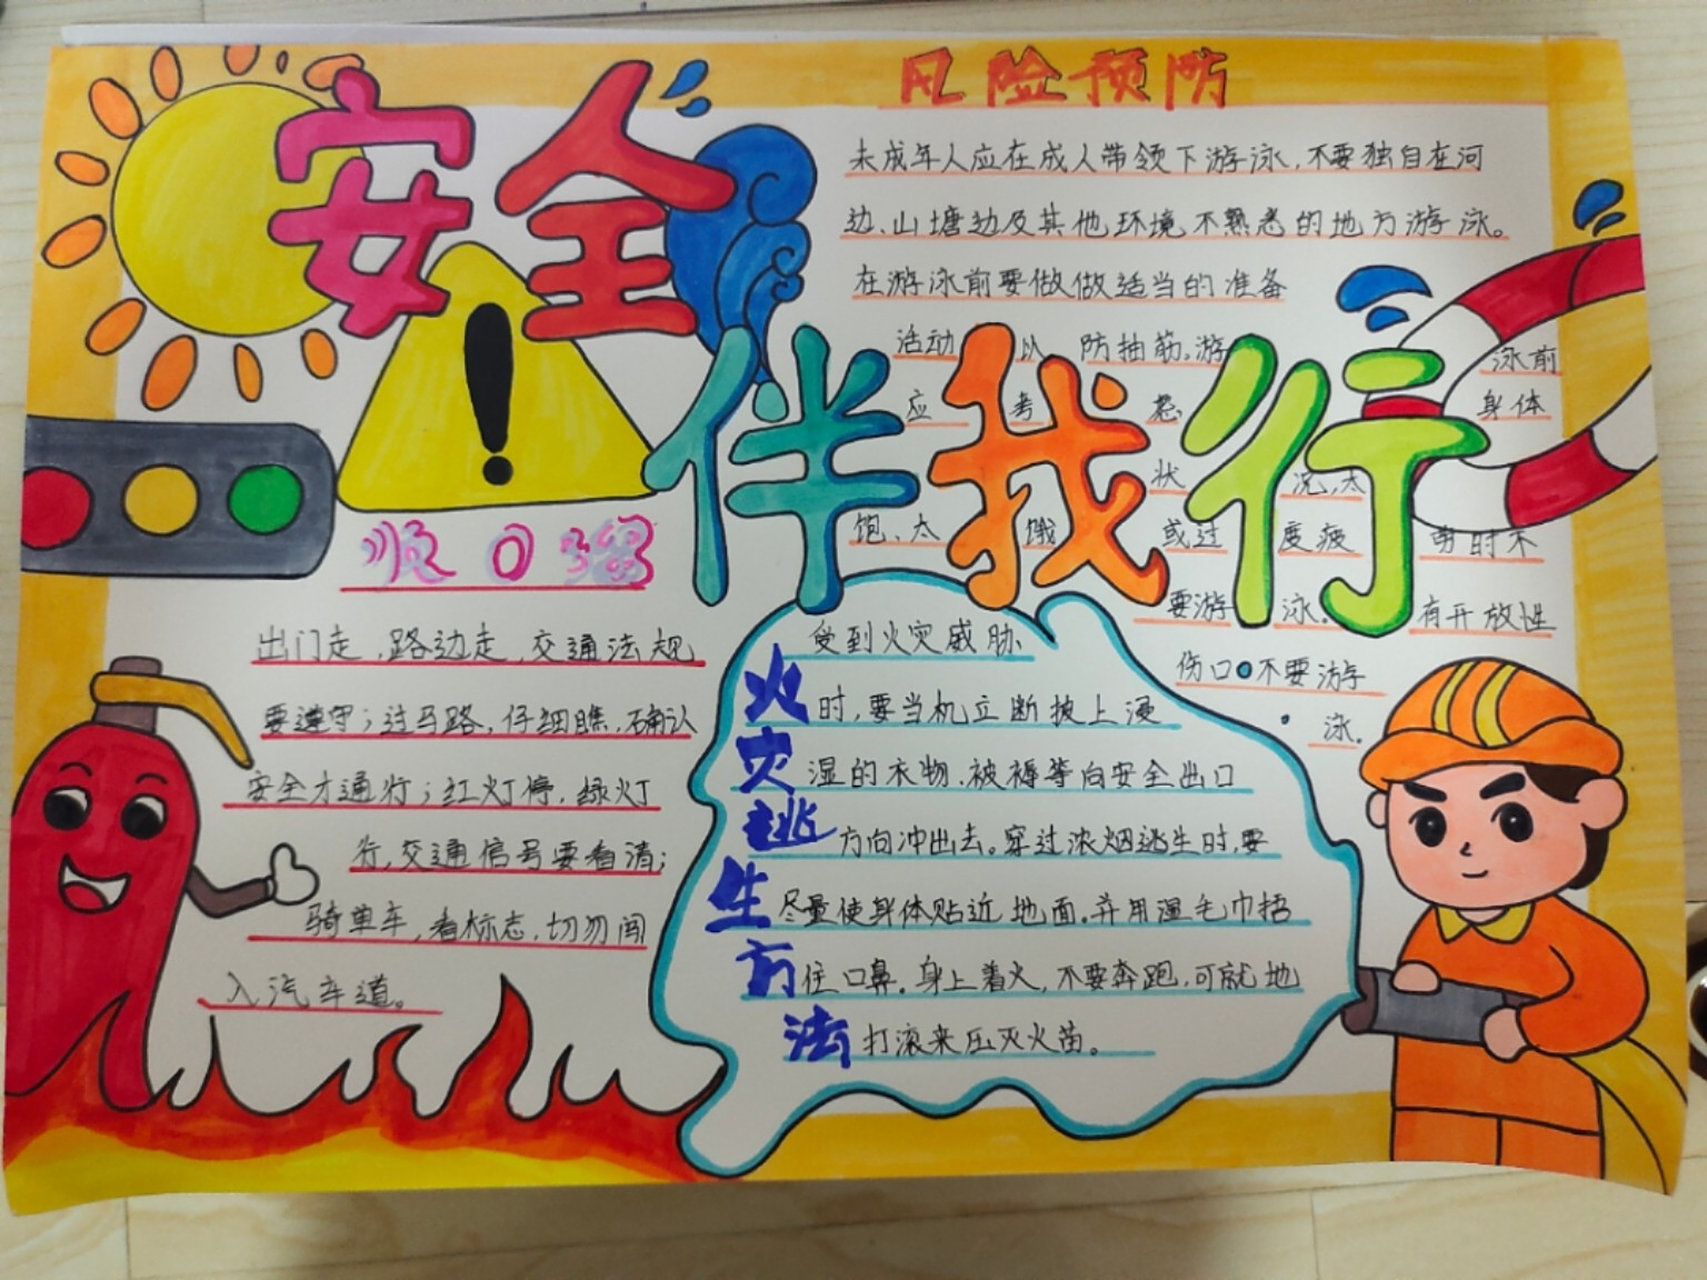 安全
伴我行
风险预防
未成年人应在成人带领下游泳,不要独自在河
边、山塘边及其他环境不熟悉的地方游泳。
在游泳前要做做适当的准备
活动 以 防抽筋,游 泳前
应 考 虑 身体
状 况,太
饱、太 饿 或过 度疲 劳时不
要游 泳. 有开放性
伤口 不要游
泳.
顺口溜
出门走,路边走,交通法规
要遵守;过马路,仔细瞧,确认
安全才通行;红灯停,绿灯
行,交通信号要看清;
骑单车,看标志,切勿闯
入汽车道。
火灾逃生方法
受到火灾威胁
时,要当机立断披上浸
湿的衣物、被褥等向安全出口
方向冲出去。穿过浓烟逃生时,要
尽量使身体贴近地面,并用湿毛巾捂
住口鼻。身上着火,不要奔跑,可就地
打滚来压灭火苗。